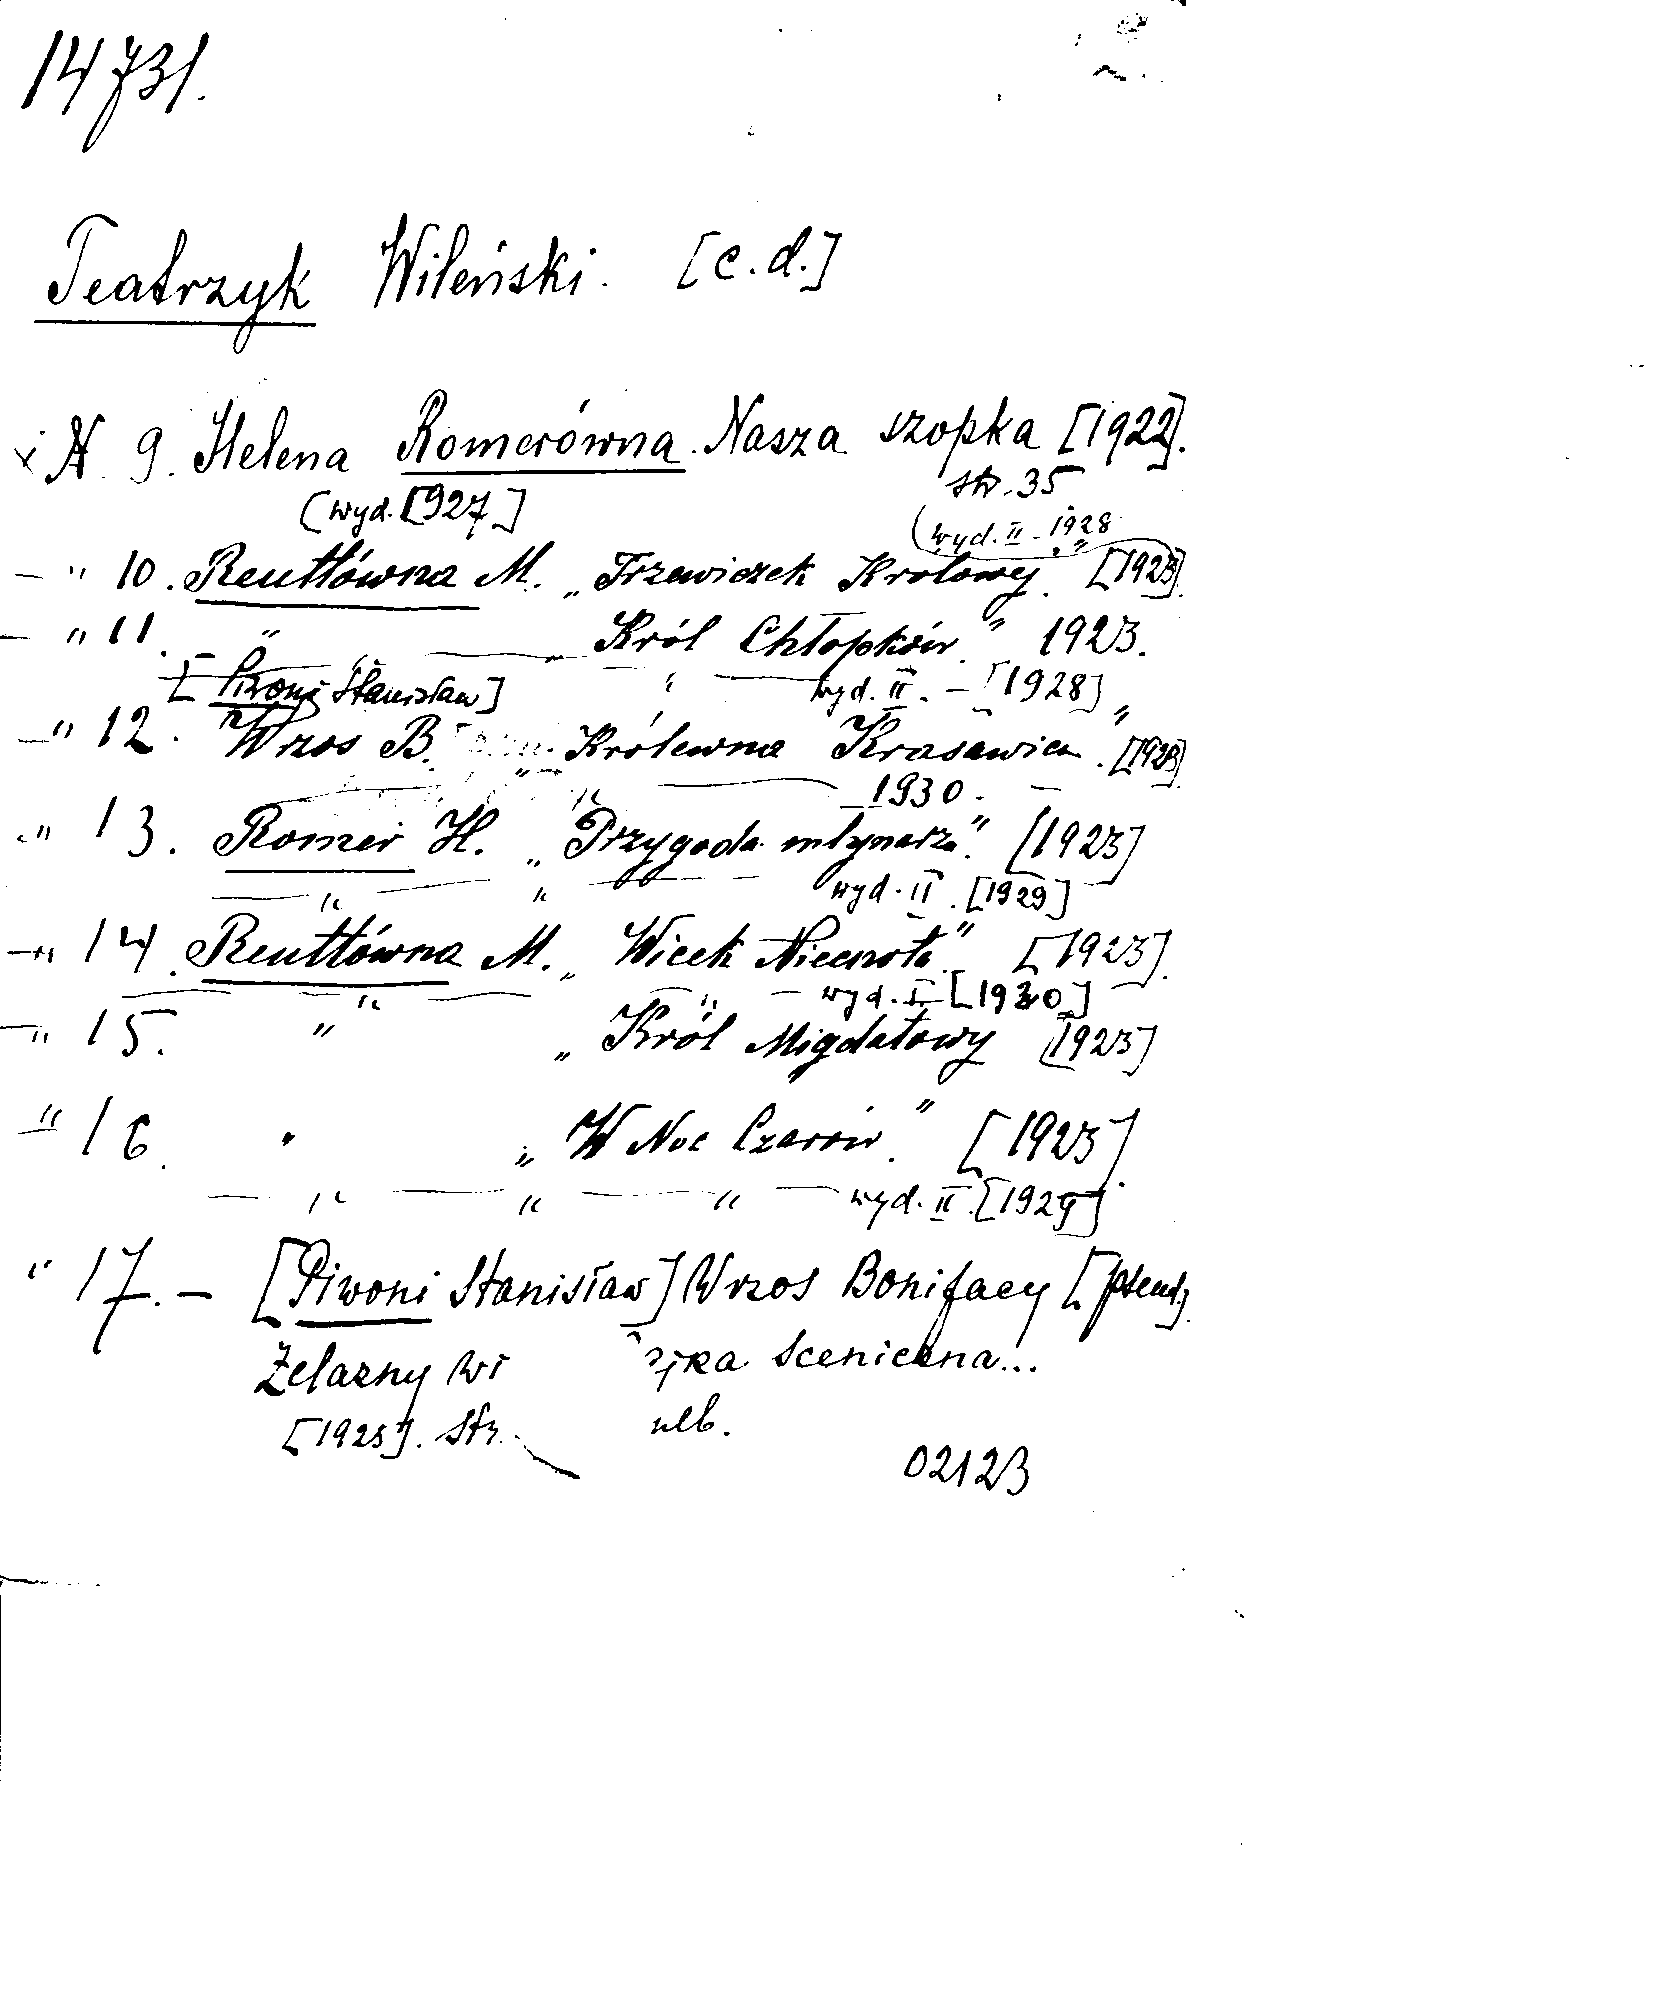 14731.
Teatrzyk Wileński. [c.d.]
x N. 9. Helena Romerówna. Nasza szopka [1922].
str. 35
(wyd. [927]
(wyd. II - 1928
— " 10. Reuttówna M. „Trzewiczek Królowej." [1923].
— " 11. " — „Król Chłopków." 1923.
[Piwoni Stanisław] — " — wyd. II. — [1928]
— " 12. Wrzos B. „Królewna Krasawica". [1923]
— " — 1930. —
" 13. Romer H. „Przygoda młynarza". [1923]
— " — " — wyd. II. [1929]
— " 14. Reuttówna M. „Wicek Niecnota" [1923].
— " — " — wyd. II [1930]
— " 15. " „Król Migdałowy [1923]
" 16. " „W Noc Czarów." [1923].
— " — " — " — wyd. II. [1929]
" 17. — [Piwoni Stanisław] Wrzos Bonifacy [pseud].
Żelazny wi jka sceniczna...
[1923]. str. nlb.
02123